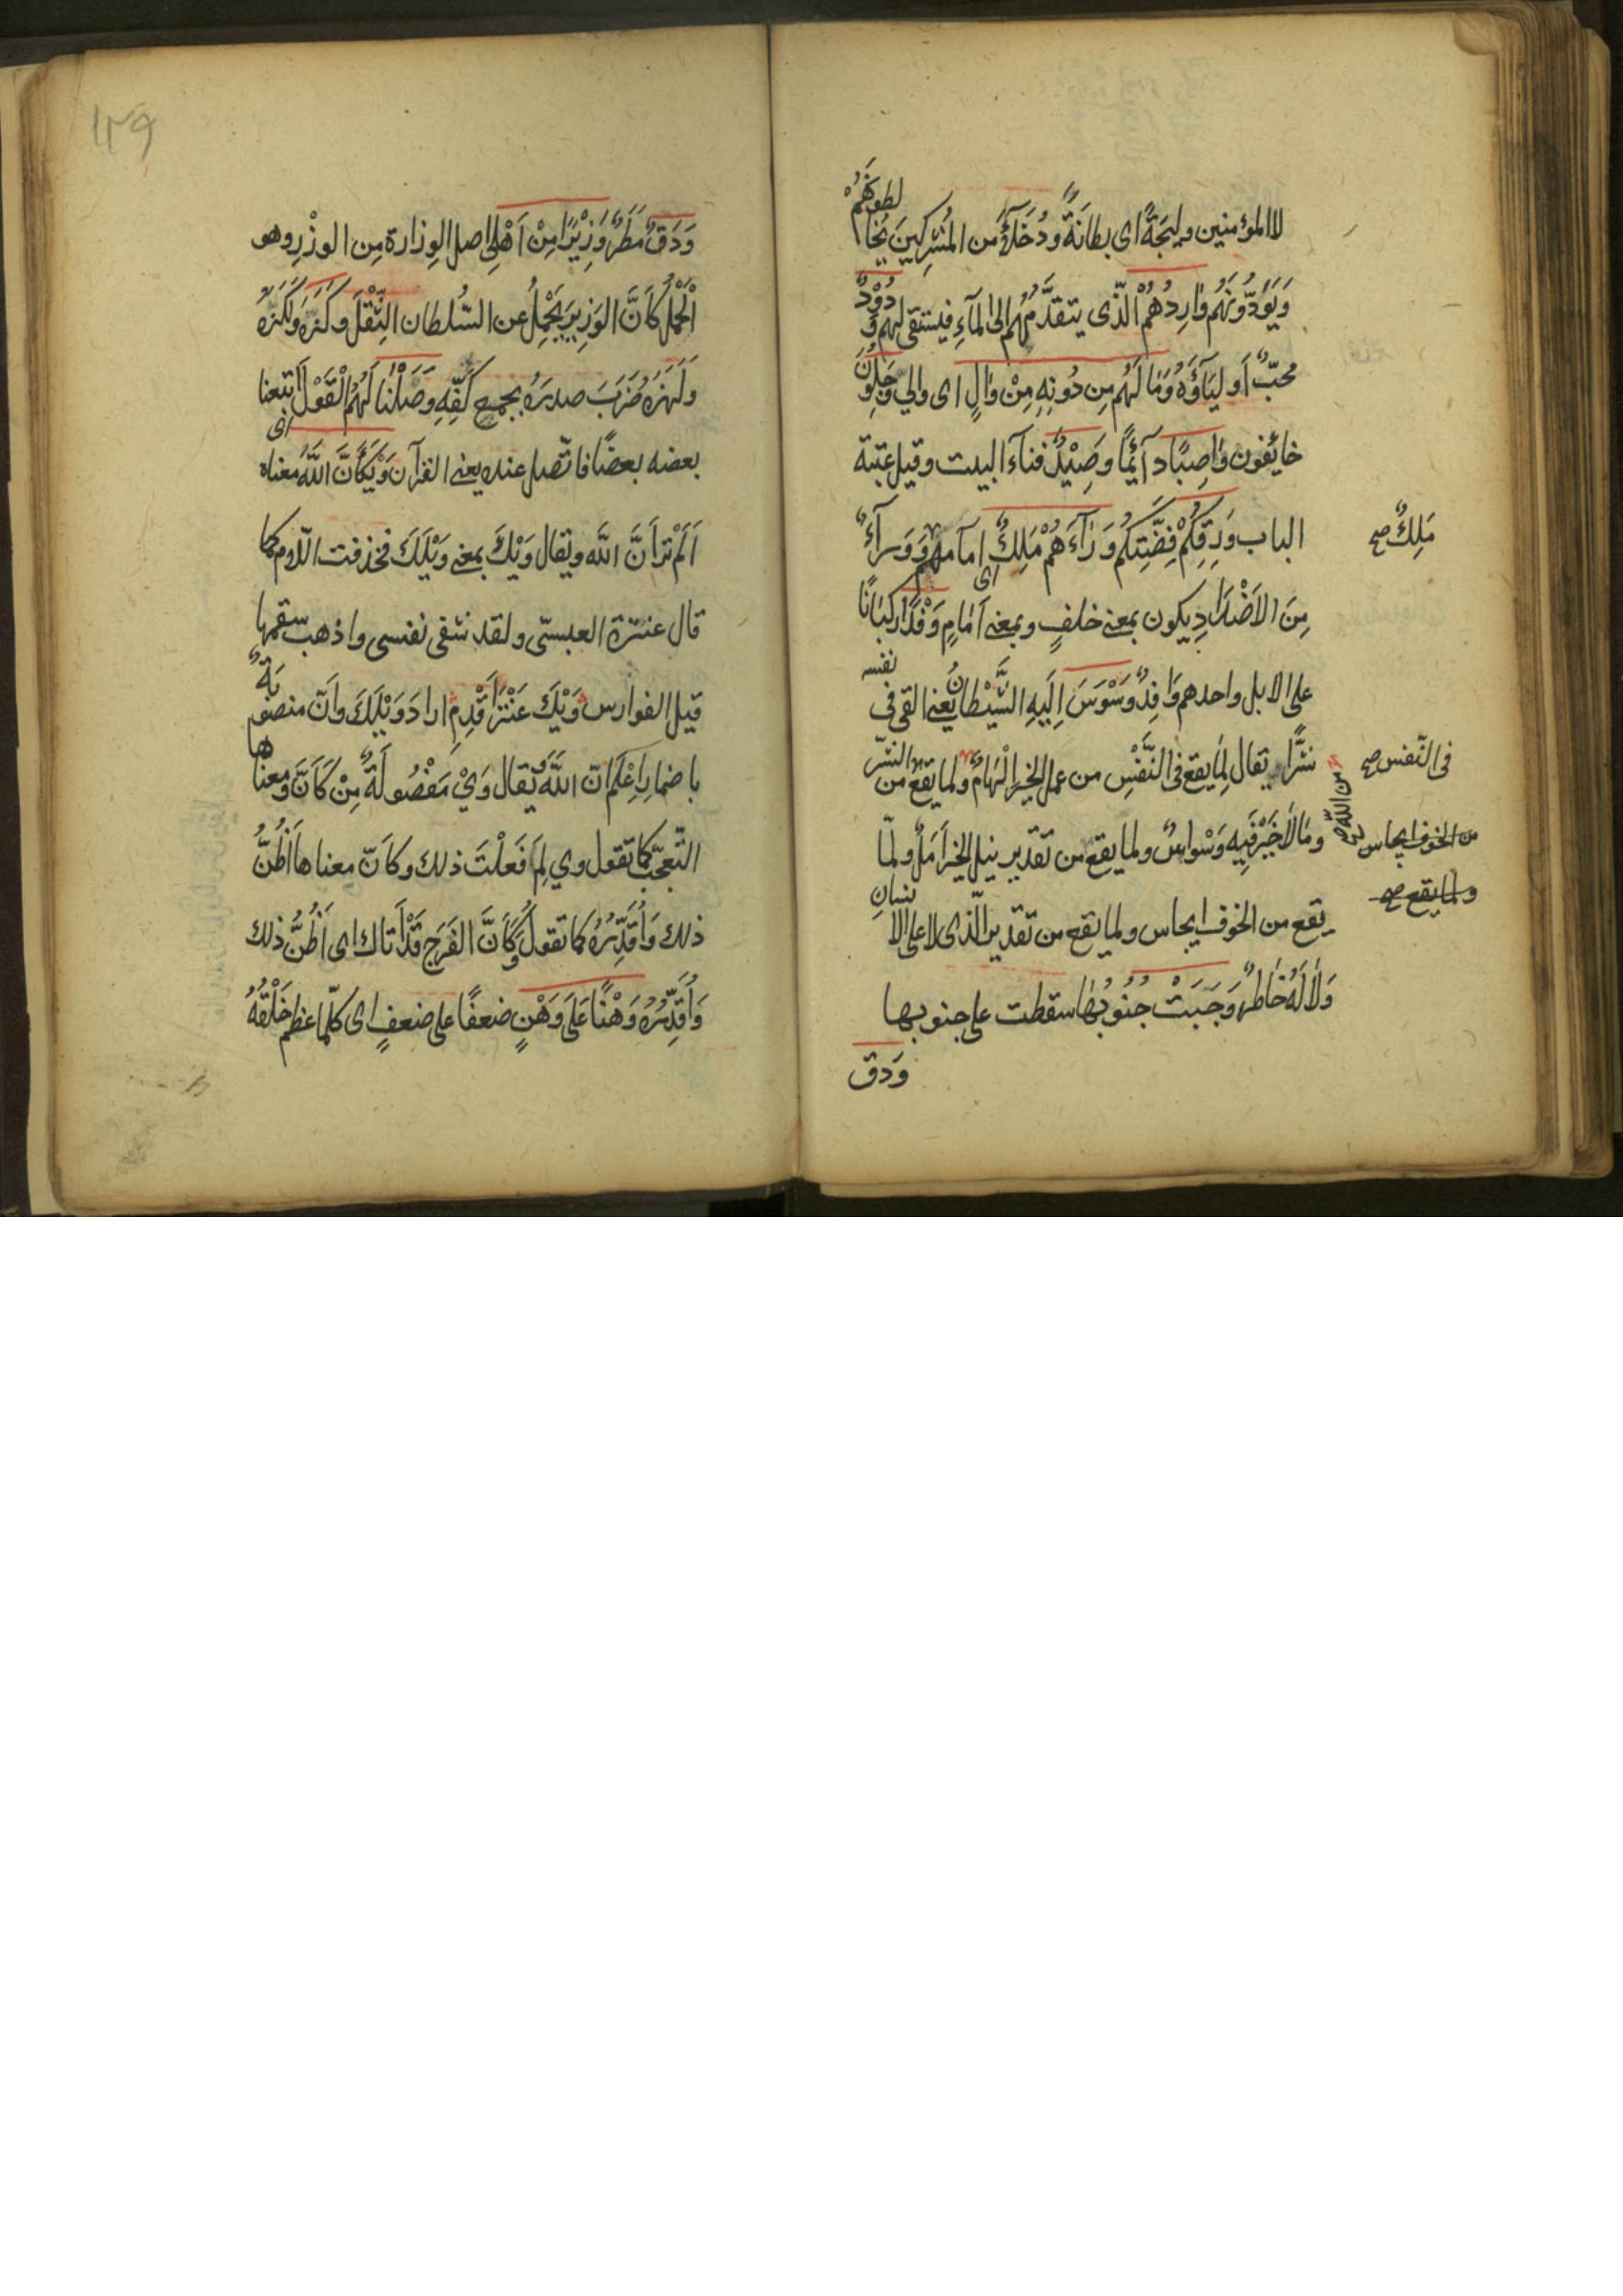 لا المؤمنين وليجَةً اى بطانَةً ودُخَلآءُ من المُشركينَ يُخا لطونَهُمْ
وَيَوَدُّونَهُم وَارِدُهُمْ الّذى يتقدَّمُهُم الى المآءِ فيستقى لهم وَدُوْدٌ
محبٌّ أوليَاؤُهُ وَمَا لَهُم مِن دُونِهِ مِنْ وَالٍ اى والي وَجِلُونَ
خائفون وَاصِبًا دآئمًا وَصِيْدٌ فناءَ البيت وقيل عتبة
الباب وَرِقِكُمْ فِضَّتِكُم وَرَآءَهُمْ مَلِكٌ اى امامهم وَوَرآءَ
مِنَ الاَضْدَادِ يكون بمعنى خلفٍ وبمعنى اَمَامٍ وَفْدًا ركبَانًا
على الابل واحدهم وَافِدٌ وَسْوَسَ اِلَيهِ الشَّيْطانُ يَعنى القى فى نفسه
شرًّا يقال لِمَا يقع فى النَّفْسِ من عمل الخير اِلْهامٌ ولما يقع من الشّر
وَمَالاَ خَيْرَ فِيهِ وَسْواسٌ ولما يقع من تقدير نيل الخير اَمَلٌ ولمّا
يقع من الخوف ايجاس ولما يقع من تقدير الّذى لا على الا نسان
وَلاَ لَهُ خَاطرٌ وَجَبَتْ جُنُوبُهَا سقطت على جنوبها
وَدق
مَلِكٌ صح
فى النّفس صح
من اللّه صح
من الخوف ايجاس
ولما يقع صح
١٢٩
وَدَقٌ مَطَرٌ وَزِيْرًا مِنْ اَهْلِى اصل الوِزارة مِن الوزْرِ وهو
اْلحِمْلُ كَاَنَّ الوَزِيرَ يَحْمِلُ عن السُّلطان الثِّقْلَ وَكَزَهُ وَلَكَزَهُ
وَلَهَزَهُ ضَرَبَ صدرَهُ بجمع كَفِّهِ وَصَّلْنَا لَهُمُ الْقَوْلَ اى اَتبعنا
بعضه بعضًا فاتّصل عنده يعنى القرآن وَيْكَاَنَّ اللّهَ معناه
اَلَمْ تَرَ اَنَّ اللّه ويقال وَيْكَ بمعنى وَيْلَكَ فحذفت اللّام كما
قال عنترة العبسىّ ولقد شفى نفسى واذهب سقمها
قيل الفوارس وَيْكَ عَنْتَرَ اَقْدِمِ اراد وَيْلَكَ واَنّ منصوبَةٌ
باضمارِ اِعْلَم انّ اللّهَ ويقال وَيْ مَفْصُولَةٌ مِنْ كَاَنَّ ومعناها
التّعجّب كما تقول وي لِمَ فَعَلْتَ ذلك وكاَنّ معناها اَظُنُّ
ذلك وَاُقَدِّرُهُ كما تقول كَاَنَّ الفَرَجَ قَدْ اَتاك اى اَظُنُّ ذلك
وَاُقَدِّرُهُ وَهْنًا عَلَى وَهْنٍ ضعفًا على ضعفٍ اى كلّما عظم خَلْقُهُ